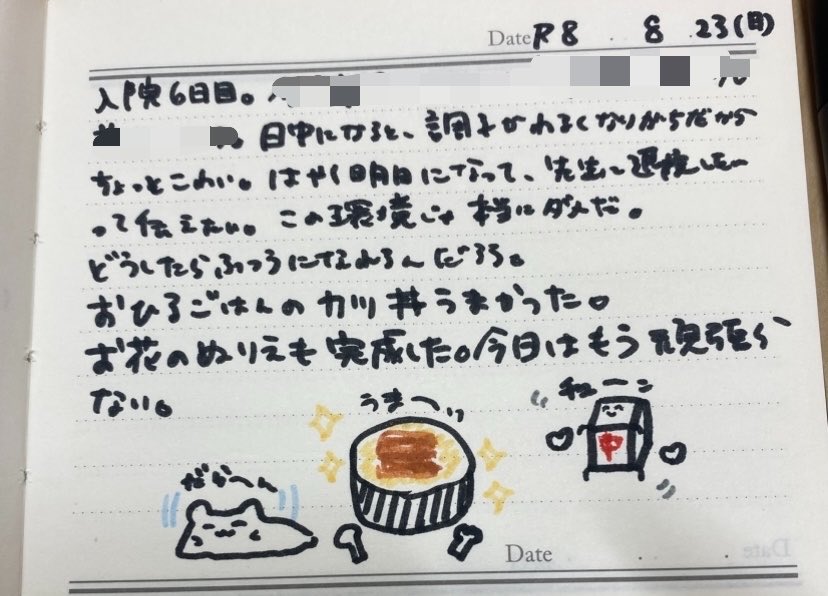 Date R8 . 8 . 23(日)
入院6日目。
日中になると、調子がわるくなりがちだから
ちょっとこわい。はやく明日になって、先生に退院したい
って伝えたい。この環境じゃ本当にダメだ。
どうしたらふつうになれるんだろう。
おひるごはんのカツ丼うまかった。
お花のぬりえも完成した。今日はもう頑張ら
ない。
うま〜っ
チューン
だら〜ん
中
Date . . .